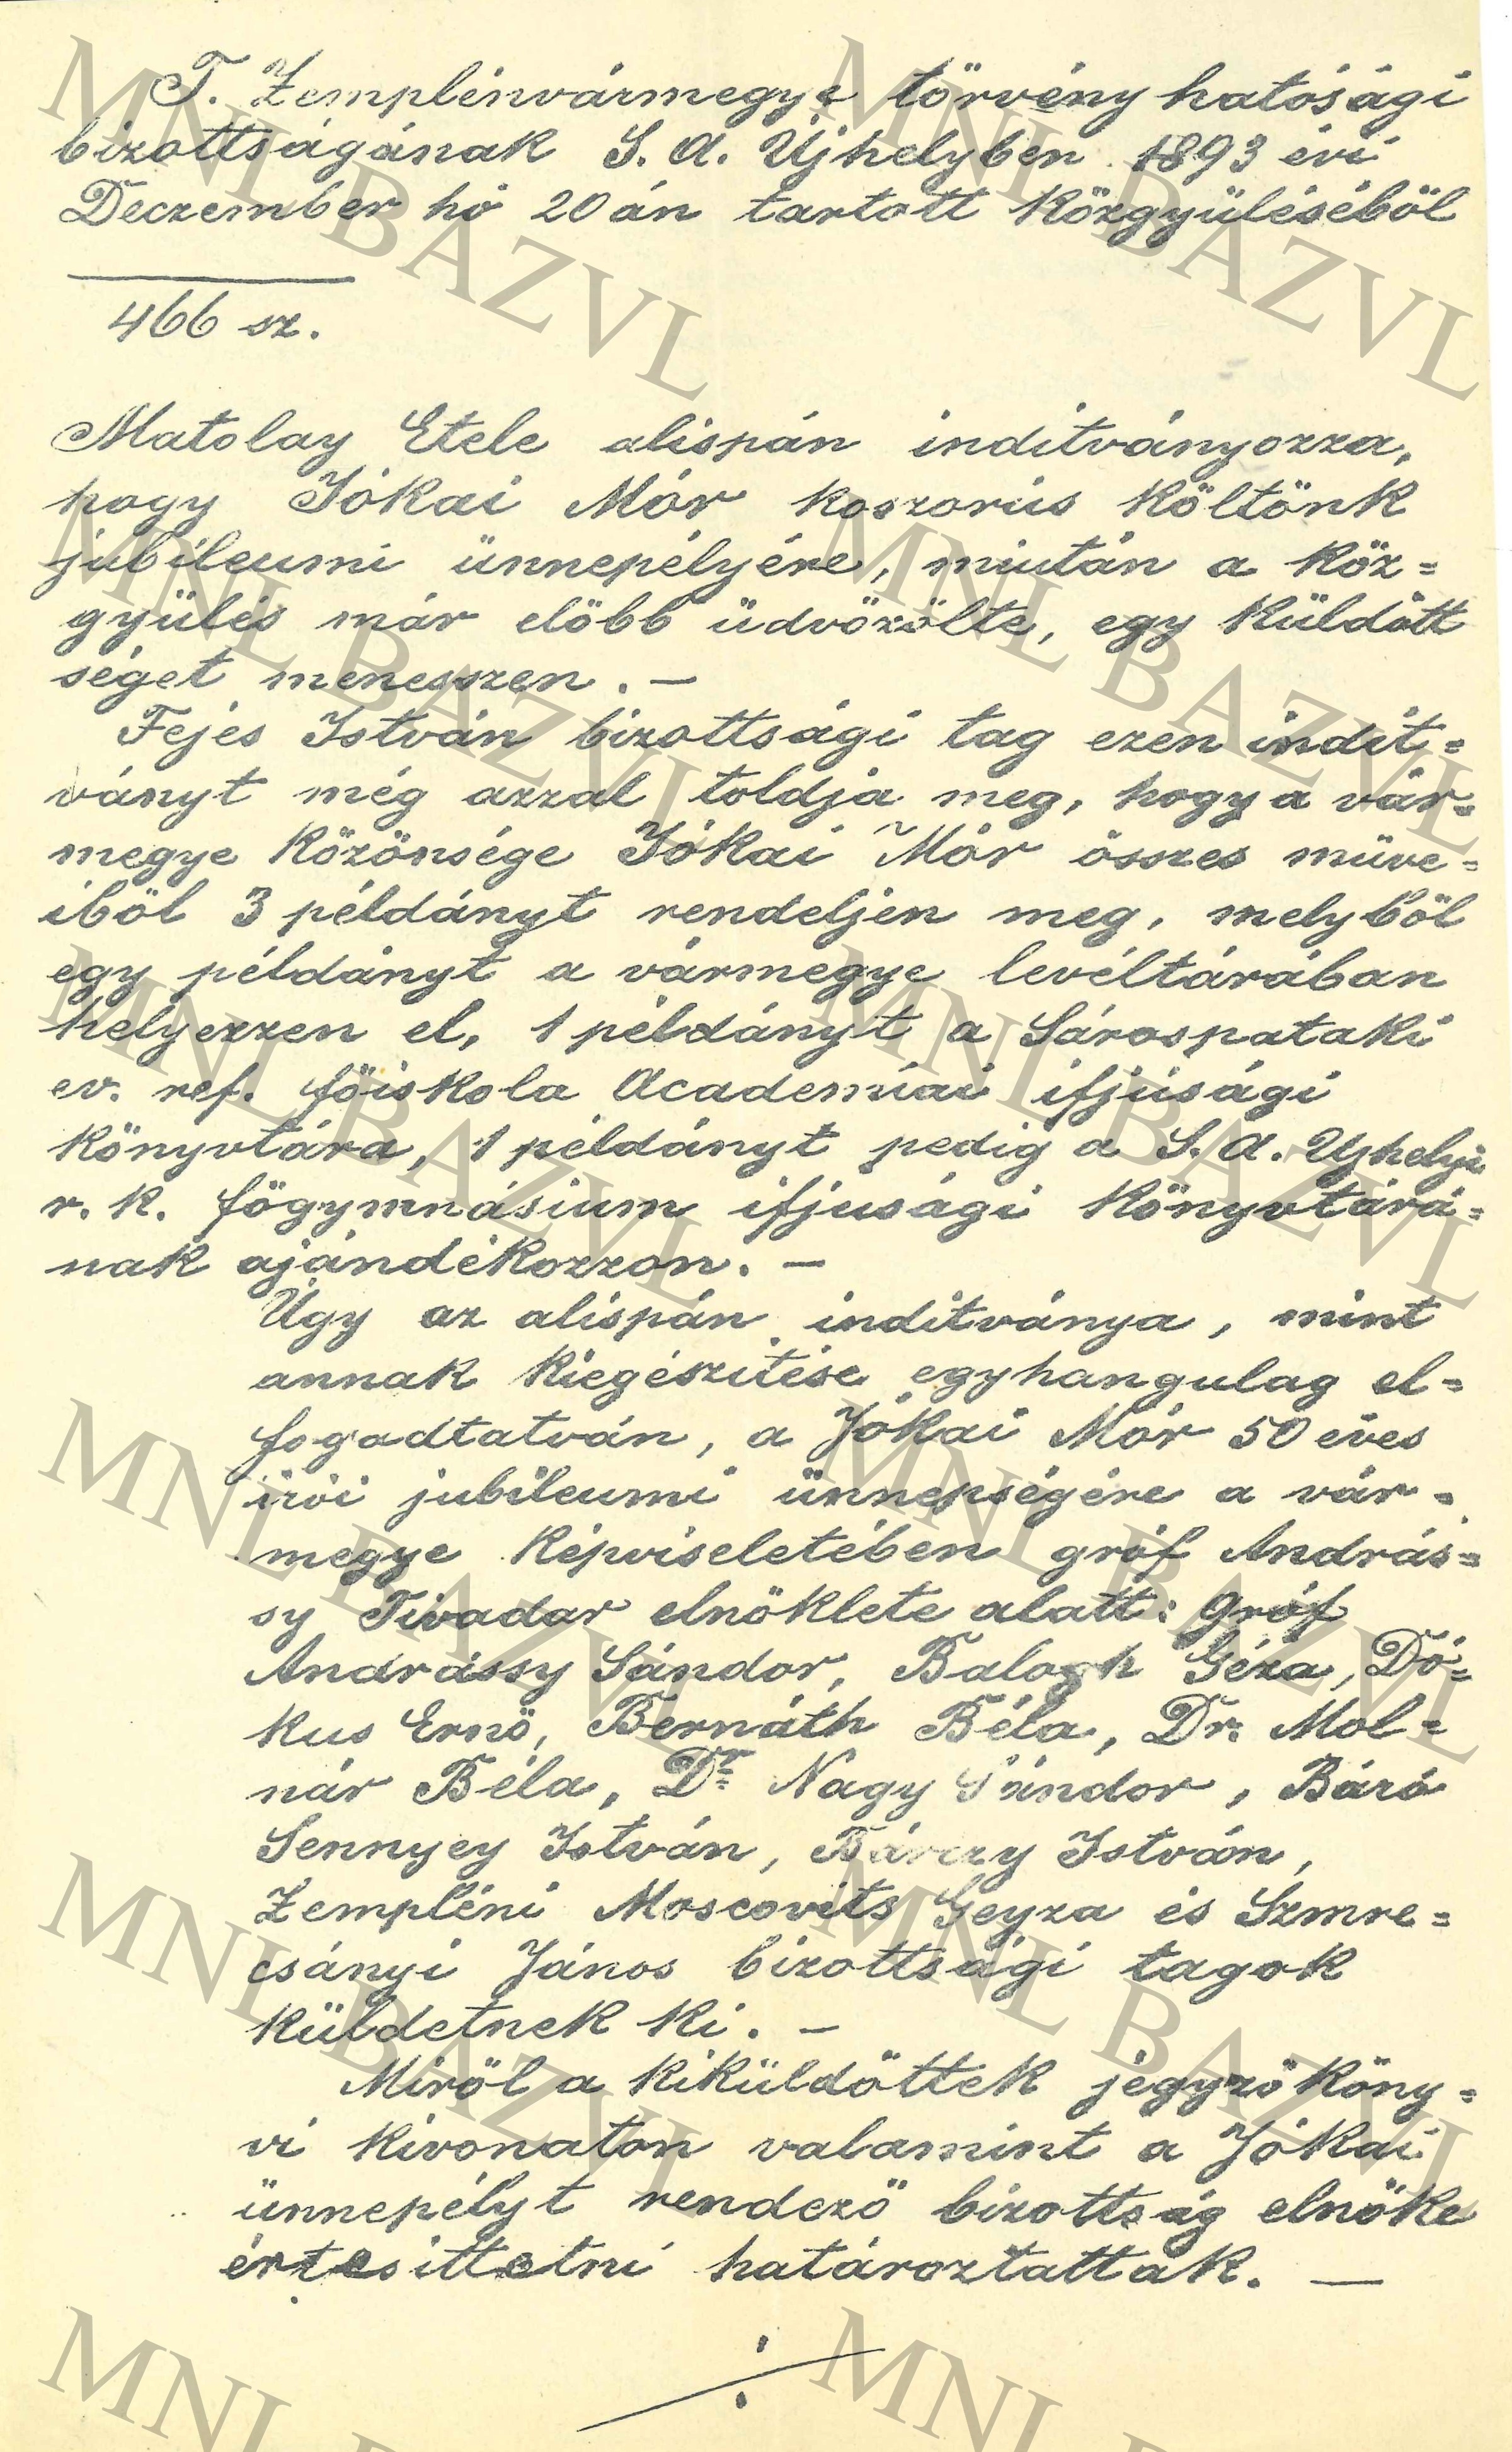 T. Zemplénvármegye törvényhatósági
bizottságának S. A. Újhelyben 1893 évi
Deczember hó 20án tartott közgyüléséböl
466 sz.
Matolay Etele alispán inditványozza,
hogy Jókai Mór koszorús költönk
jubileumi ünnepélyére, miután a köz=
gyülés már elöbb üdvözölte, egy küldött
séget menesszen. —
Fejes István bizottsági tag ezen indit=
ványt még azzal toldja meg, hogy a vár=
megye közönsége Jókai Mór összes müve=
iböl 3 példányt rendeljen meg, melyböl
egy példányt a vármegye levéltárában
helyezzen el, 1 példányt a Sárospataki
ev. ref. föiskola Academiai ifjúsági
könyvtára, 1 példányt pedig a S. A. Ujhelyi
r. k. fögymnásium ifjusági könyvtárá=
nak ajándékozzon. —
Úgy az alispán inditványa, mint
annak kiegészitése egyhangulag el=
fogadtatván, a Jókai Mór 50 éves
irói jubileumi ünnepségére a vár=
megye képviseletében gróf András=
sy Tivadar elnöklete alatt: Gróf
Andrássy Sándor, Balogh Géza, Dó=
kus Ernö, Bernáth Béla, Dr. Mol=
nár Béla, Dr Nagy Sándor, Báró
Sennyey István, Bárczy István,
Zempléni Moscovits Geyza és Szmre=
csányi János bizottsági tagok
küldetnek ki. —
Miröl a kiküldöttek jegyzököny=
vi kivonaton valamint a Jókai
ünnepélyt rendezö bizottság elnöke
értesittetni határoztattak. —
MNL BAZVL